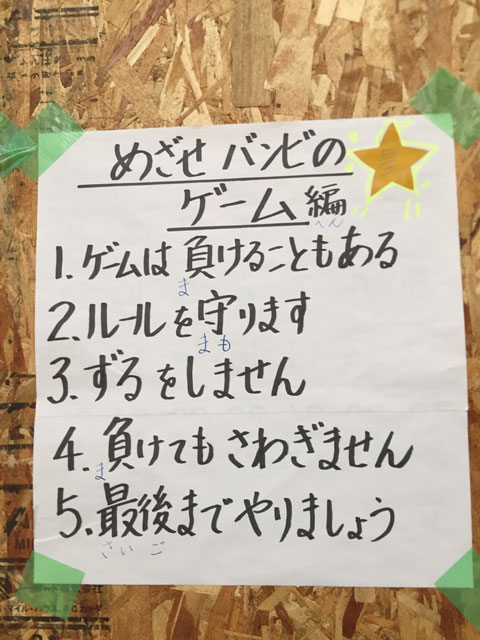 めざせ バンビの
ゲーム編
へん
1. ゲームは 負けることもある
ま
2. ルールを守ります
まも
3. ずるをしません
4. 負けてもさわぎません
ま
5. 最後までやりましょう
さいご